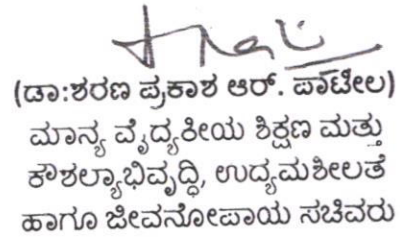 (ಡಾ:ಶರಣ ಪ್ರಕಾಶ ಆರ್. ಪಾಟೀಲ)
ಮಾನ್ಯ ವೈದ್ಯಕೀಯ ಶಿಕ್ಷಣ ಮತ್ತು
ಕೌಶಲ್ಯಾಭಿವೃದ್ಧಿ, ಉದ್ಯಮಶೀಲತೆ
ಹಾಗೂ ಜೀವನೋಪಾಯ ಸಚಿವರು